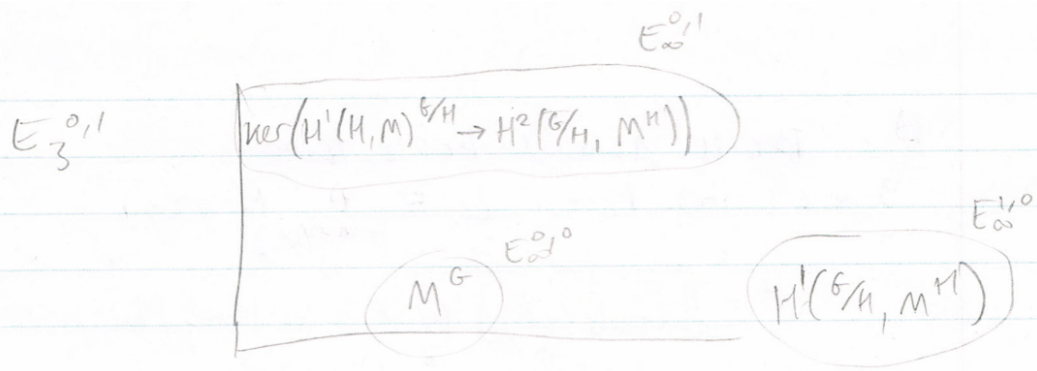 E_∞^{0,1}
E_3^{0,1} ker(H^1(H,M)^{G/H} → H^2(G/H, M^H))
E_∞^{1,0}
E_∞^{0,0}
M^G H^1(G/H, M^H)